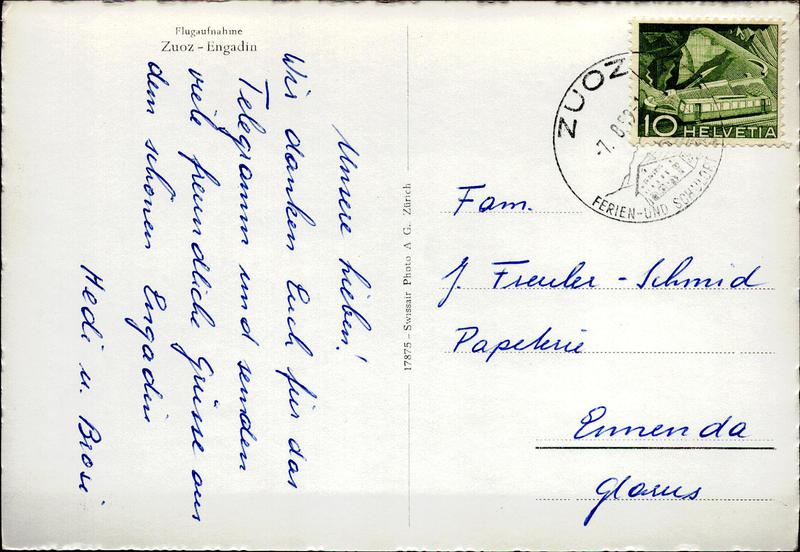 Flugaufnahme
Zuoz - Engadin
Unsere lieben!
Wir danken Euch für das
Telegramm und senden
viele freundliche Grüsse aus
dem schönen Engadin
Hedi u. Brosi
17875 – Swissair Photo A G. Zürich
ZUOZ
-7. 8.53-
FERIEN-UND SCHULORT
10 HELVETIA
Fam.
J. Freuler - Schmid
Papeterie
Ennenda
Glarus